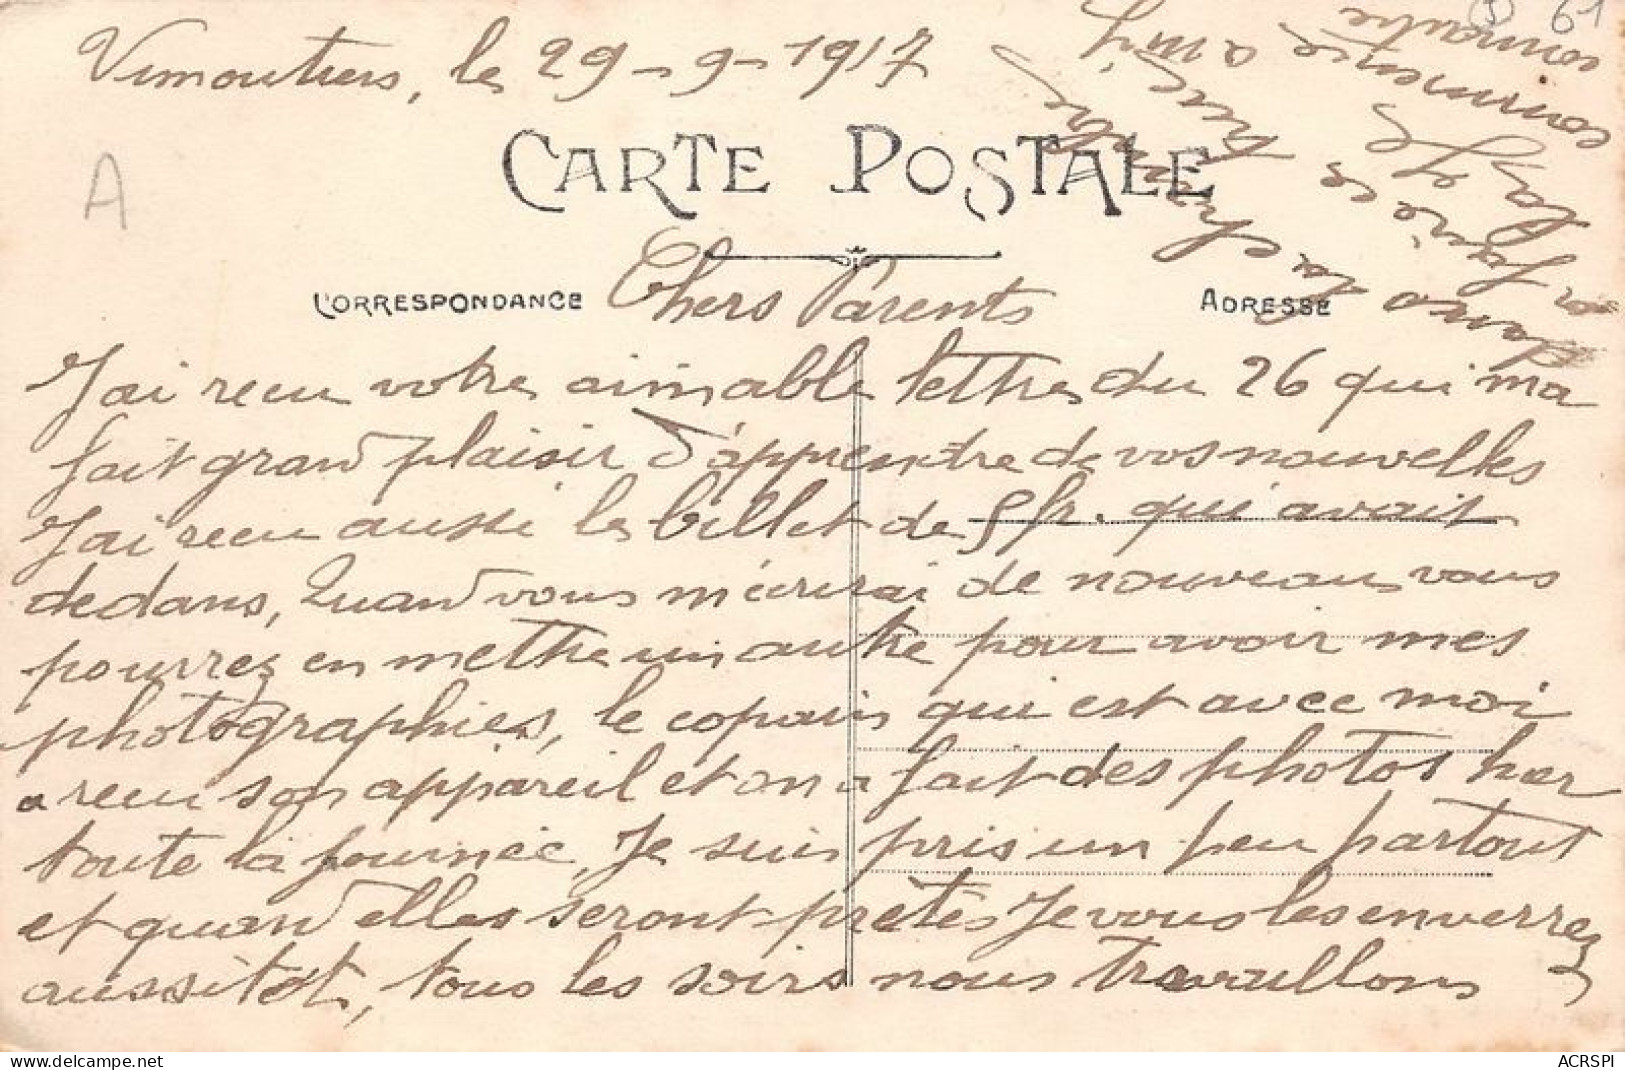 Vimoutiers, le 29-9-1917
61
A
CARTE POSTALE
CORRESPONDANCE
Chers Parents
ADRESSE
J'ai recu votre aimable lettre du 26 qui ma
fait grand plaisir d'apprendre de vos nouvelles
J'ai recu aussi le billet de 5 fr. qui avait
dedans, Quand vous mécrirai de nouveau vous
pourrez en mettre un autre pour avoir mes
photographies, le copain qui est avec moi
a recu son appareil et on a fait des photos hier
toute la journée, Je suis pris un peu partout
et quand elles seront prêtes Je vous les enverrez
aussitôt, tous les soirs nous travaillons
ACRSPI